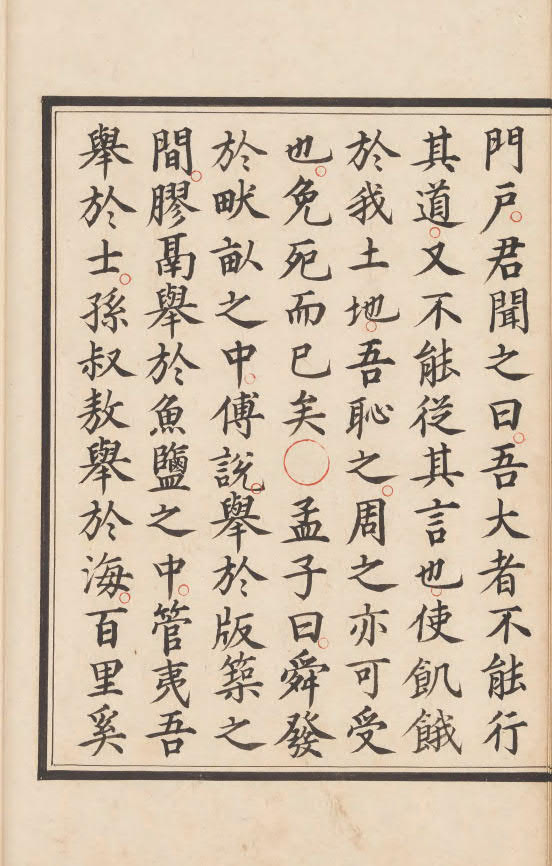 門戶君聞之曰吾大者不能行
其道又不能從其言也使飢餓
於我土地吾恥之周之亦可受
也免死而已矣○孟子曰舜發
於畎畝之中傅說舉於版築之
間膠鬲舉於魚鹽之中管夷吾
舉於士孫叔敖舉於海百里奚